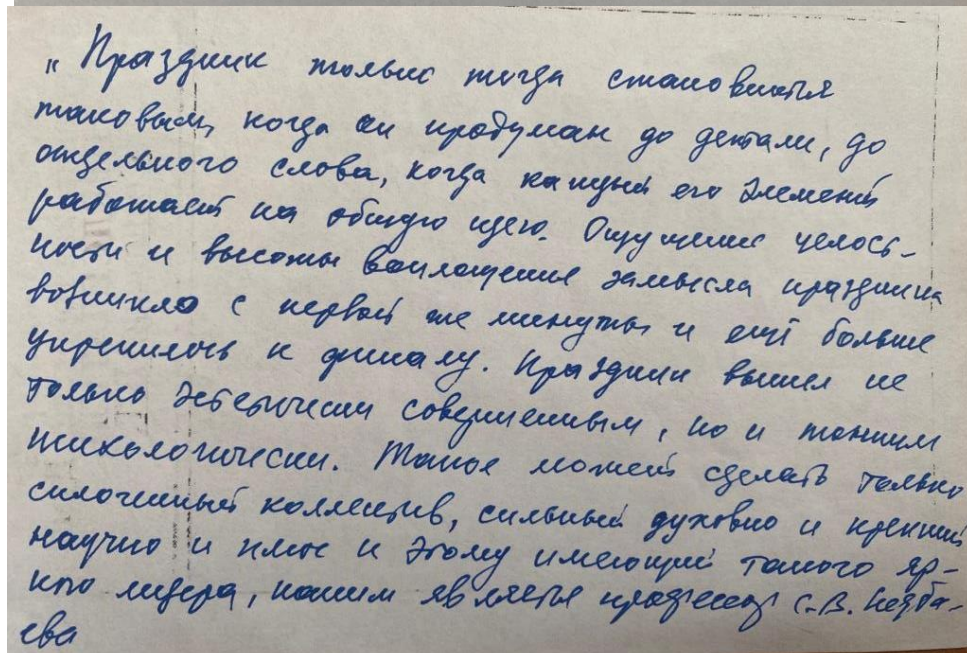 „Праздник только тогда становится
таковым, когда он продуман до детали, до
отдельного слова, когда каждый его элемент
работает на общую идею. Ощущение целост-
ности и высоты воплощения замысла праздника
возникло с первой же минуты и ещё больше
укрепилось к финалу. Праздник вышел не
только эстетически совершенным, но и тонким
психологически. Такое может сделать только
сплоченный коллектив, сильный духовно и крепкий
научно и плюс к этому имеющий такого яр-
кого лидера, каким является профессор С.В.